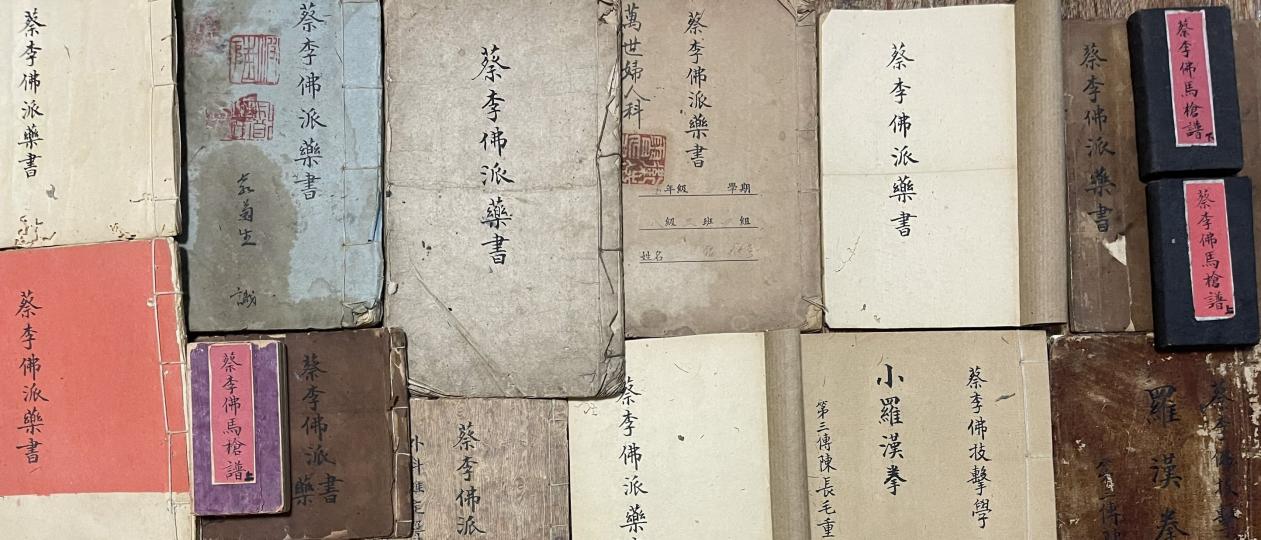 蔡李佛派藥書
蔡李佛派藥書
菊生
識
蔡李佛派藥書
萬世婦人科
蔡李佛派藥書
年級 學期
級 班 組
姓名
蔡李佛派藥書
蔡李佛派藥書
蔡李佛馬槍譜下
蔡李佛馬槍譜上
蔡李佛派藥書
蔡李佛馬槍譜上
蔡李佛派藥書
蔡李佛派
外科
蔡李佛派藥
蔡李佛技擊學
小羅漢拳
第三傳陳長毛重
蔡李佛技擊
羅漢拳